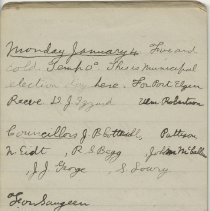 Monday January 4. Fine and
cold. Temp 0°. This is municipal
election day here. For Port Elgin
Reeve D J Wm Robertson
Councillors J P Patterson
N Eidt, R S Begg John McCallum
J J George S Lowry
For Saugeen